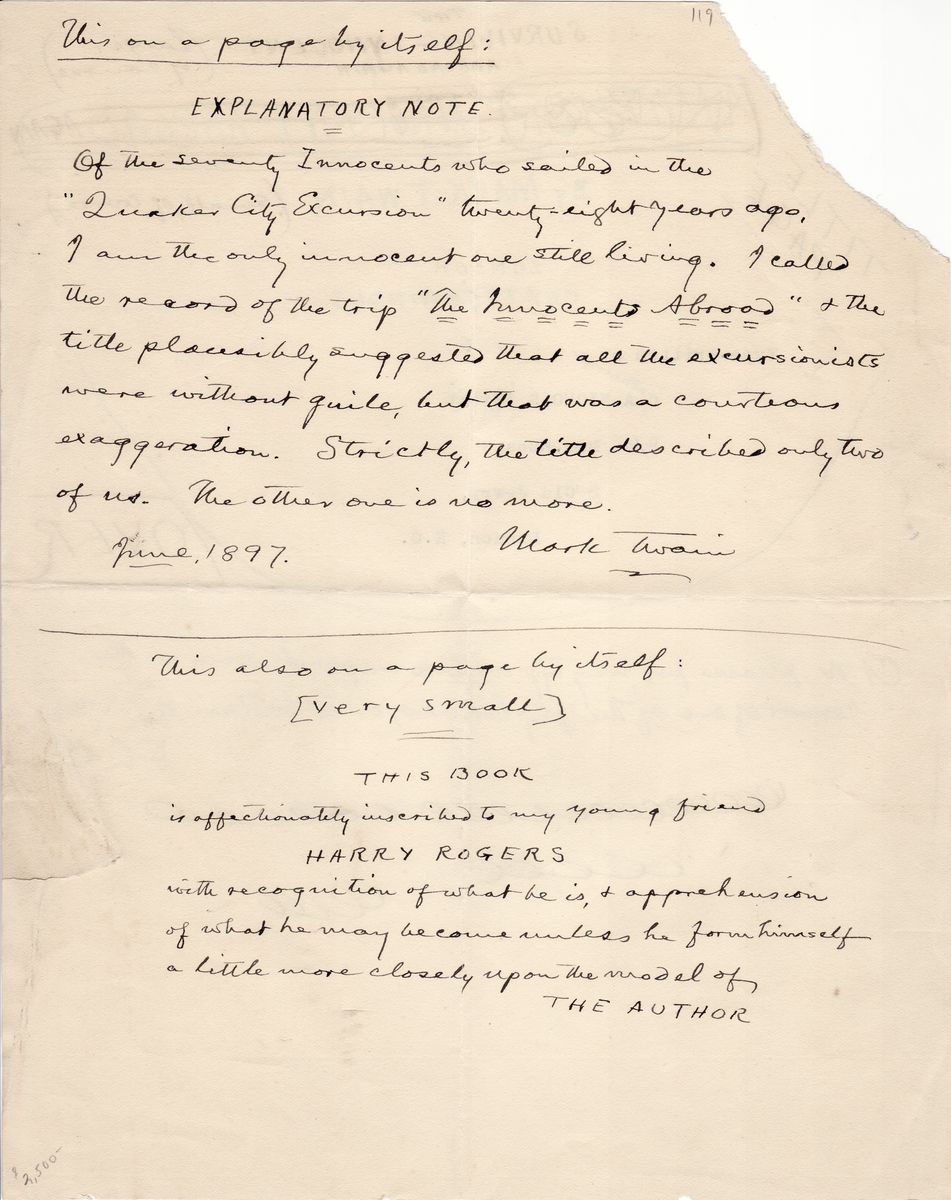 119
This on a page by itself:
EXPLANATORY NOTE.
Of the seventy Innocents who sailed in the
"Quaker City Excursion" twenty-eight years ago,
I am the only innocent one still living. I called
the record of the trip "The Innocents Abroad" & the
title plausibly suggested that all the excursionists
were without guile, but that was a courteous
exaggeration. Strictly, the title described only two
of us. The other one is no more.
June, 1897. Mark Twain
This also on a page by itself:
[very small]
THIS BOOK
is affectionately inscribed to my young friend
HARRY ROGERS
with recognition of what he is, & apprehension
of what he may become unless he form himself
a little more closely upon the model of
THE AUTHOR
$2,500-